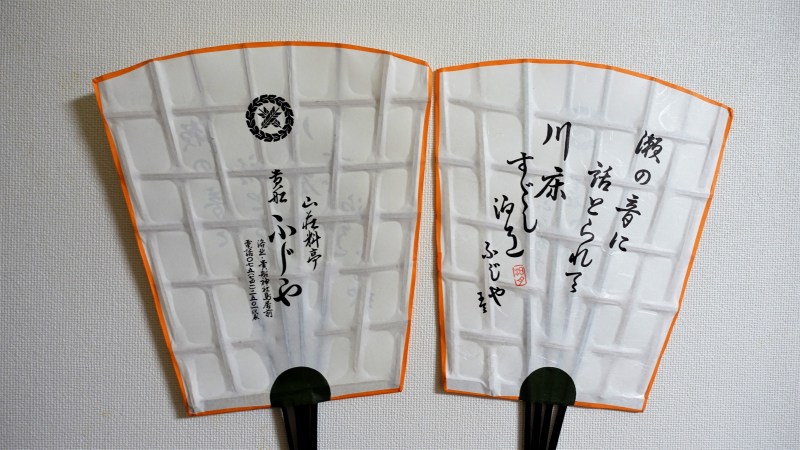 山荘料亭
貴船 ふじや
洛北・貴船神社鳥居前
電話〇七五(七四一)二五〇一代表
瀬の音に
話とられる
川床
すゞし
ふじや